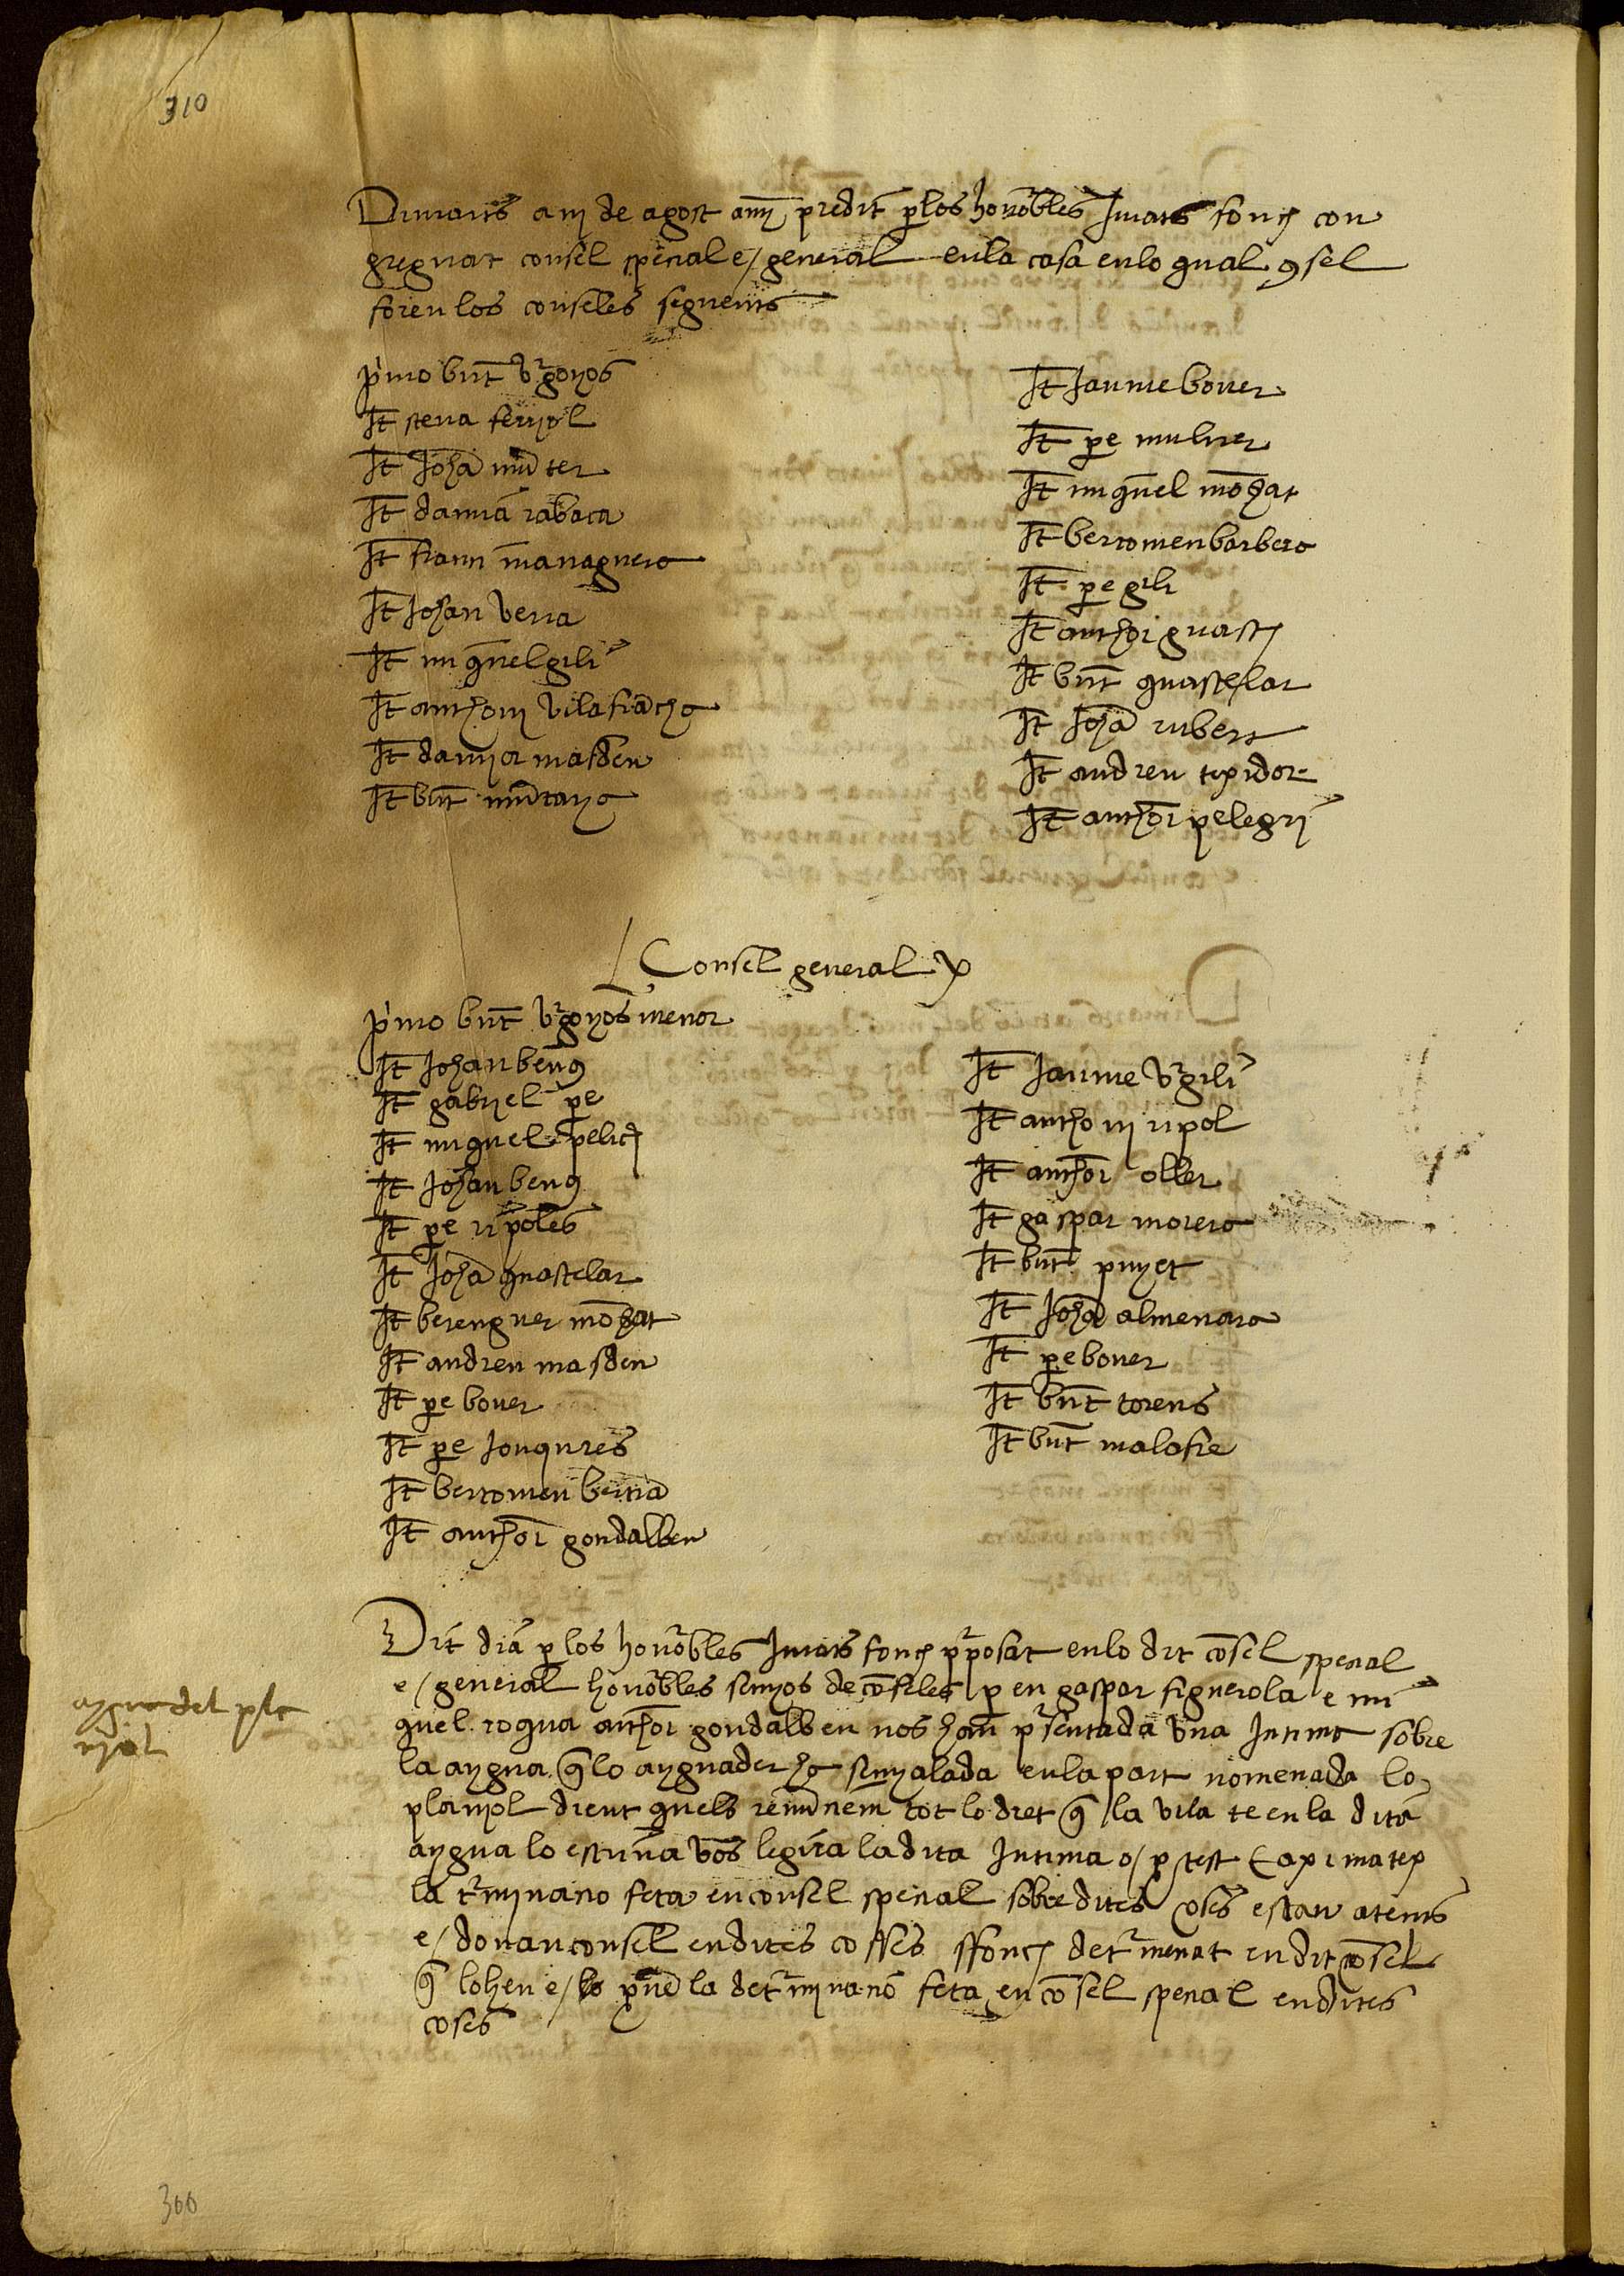 310
Dimars a iij de agost anj predit p los honorables Jurats fonch con
greguat consel spesial e/ general en la casa en lo qual consel
foren los conseles seguens
primo bnt vrgonos
It steva ferriol
It Joha munter
It damia rabaca
It franci managuera
It Johan verra
It miquel gili
It anthoni vilafrancha
It damia masdeu
It bnt muntanya
It Jaume bover
It pe muliner
It miquel monzat
It bertomeu barbera
It pe gili
It anthoi guasch
It bnt quastelar
It Joha rubert
It andreu texidor
It anthoi pelegri
Consel general
primo bnt vrgonos menor
It Johan beng
It gabriel pe
It miquel pelich
It Johan beng
It pe ripoles
It Joha quastelar
It berenguer monzat
It andreu masdeu
It pe bover
It pe Jonqures
It bertomeu bertra
It anthoi gondalbeu
It Jaume vrgili
It anthoni ripol
It anthoi oller
It gaspar morera
It bnt punyet
It Joha almenara
It pe bover
It bnt torens
It bnt malafre
Dit dia p los honorables Jurats fonch pposat en lo dit consel spesial
e/ general honorables senyos de conseles p en gaspar figuerola e mi
quel roqua anthoi gondalbeu nos han presentada una Intima sobre
la aygua q lo ayguader ha senyalada en la part nomenada lo
planyol dient quels renunciem tot lo dret q la vila te en la dita
aygua lo escriva vos legira la dita Intima o/ ptest e axi matex
la terminacio feta en consel spesial sobre dites coses estau atens
e/ donau consel en dites cosses ffonch determenat en dit consel
q lohen e/ la determinacio feta en consel spesial en dites
coses
aygua del pla
nyol
300